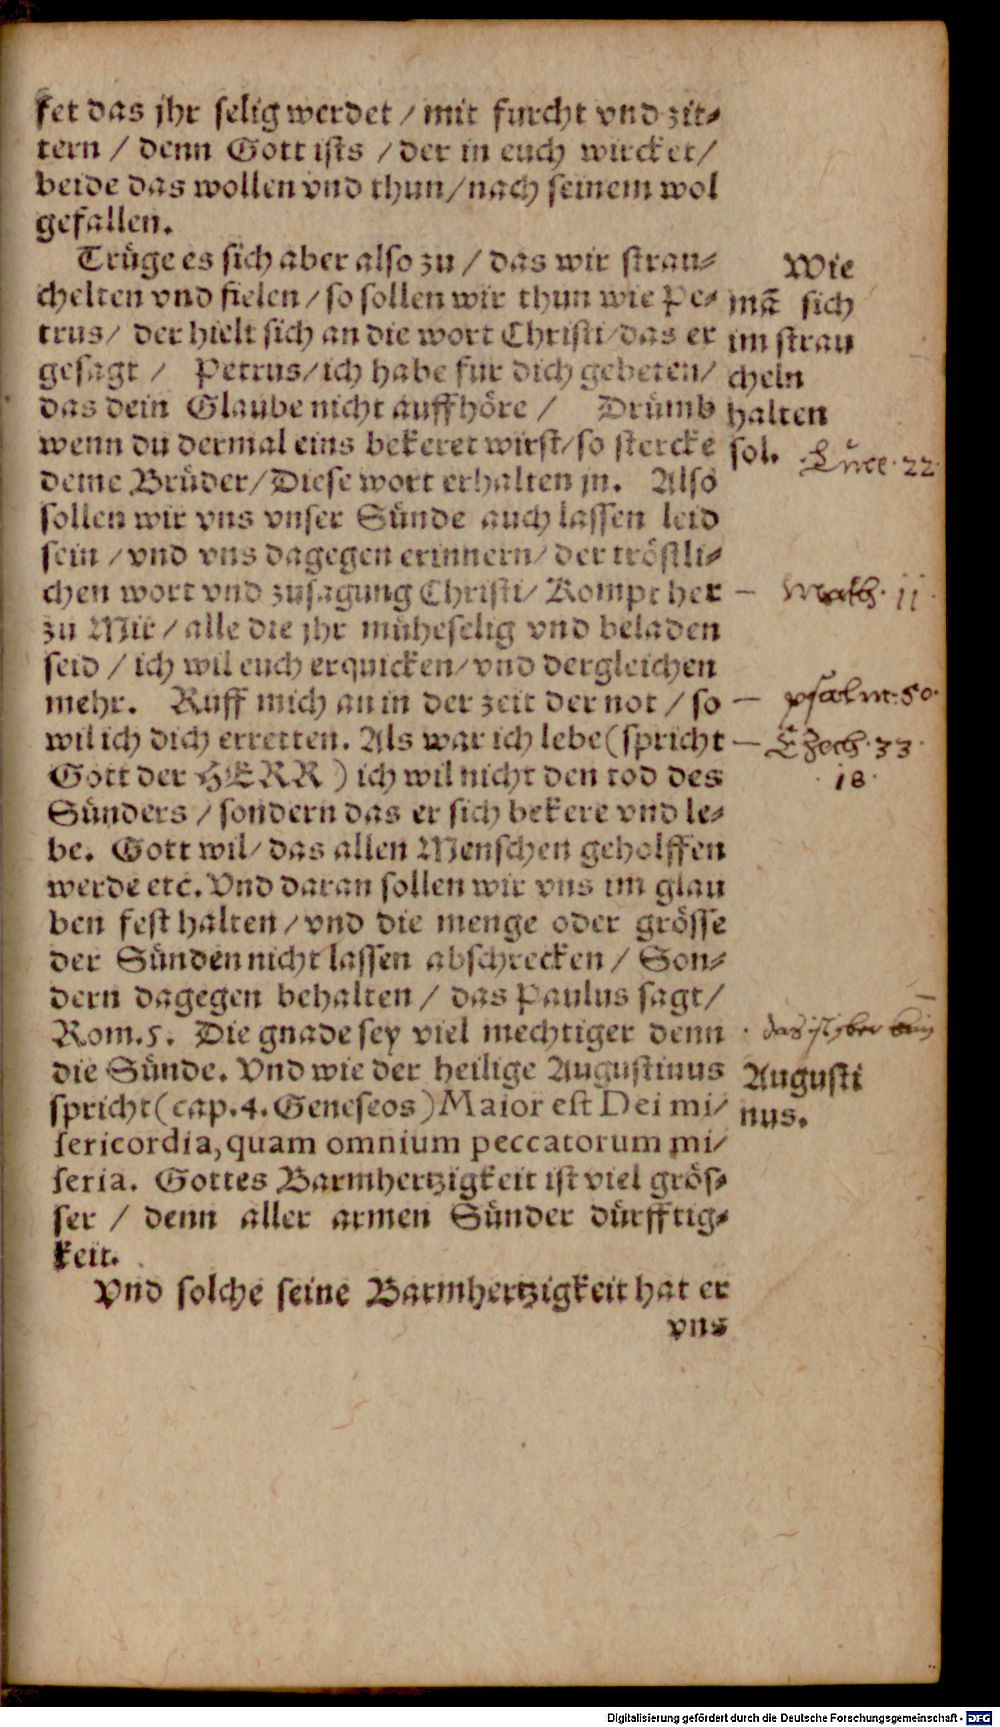 ket das jhr selig werdet / mit furcht vnd zit-
tern / denn Gott ists / der in euch wircket /
beide das wollen vnd thun / nach seinem wol
gefallen.
Trüge es sich aber also zu / das wir strau-
chelten vnd fielen / so sollen wir thun wie Pe-
trus / der hielt sich an die wort Christi / das er
gesagt / Petrus / ich habe fur dich gebeten /
das dein Glaube nicht auffhöre / Drümb
wenn du dermal eins bekeret wirst / so stercke
deine Brüder / Diese wort erhalten jn. Also
sollen wir vns vnser Sünde auch lassen leid
sein / vnd vns dagegen erinnern / der tröstli-
chen wort vnd zusagung Christi / Kompt her
zu Mir / alle die jhr müheselig vnd beladen
seid / ich wil euch erquicken / vnd dergleichen
mehr. Ruff mich an in der zeit der not / so
wil ich dich erretten. Als war ich lebe (spricht
Gott der HERR) ich wil nicht den tod des
Sünders / sondern das er sich bekere vnd le-
be. Gott wil / das allen Menschen geholffen
werde etc. Vnd daran sollen wir vns im glau
ben fest halten / vnd die menge oder grösse
der Sünden nicht lassen abschrecken / Son-
dern dagegen behalten / das Paulus sagt /
Rom. 5. Die gnade sey viel mechtiger denn
die Sünde. Vnd wie der heilige Augustinus
spricht (cap. 4. Geneseos) Maior est Dei mi-
sericordia, quam omnium peccatorum mi-
seria. Gottes Barmhertzigkeit ist viel grös-
ser / denn aller armen Sünder dürfftig-
keit.
Vnd solche seine Barmhertzigkeit hat er
vns
Wie
mã sich
im strau
cheln
halten
sol.
Luce. 22.
Math. 11.
psalm. 50.
Ezech. 33.
18.
das ist
Augusti
nus.
Digitalisierung gefördert durch die Deutsche Forschungsgemeinschaft - DFG